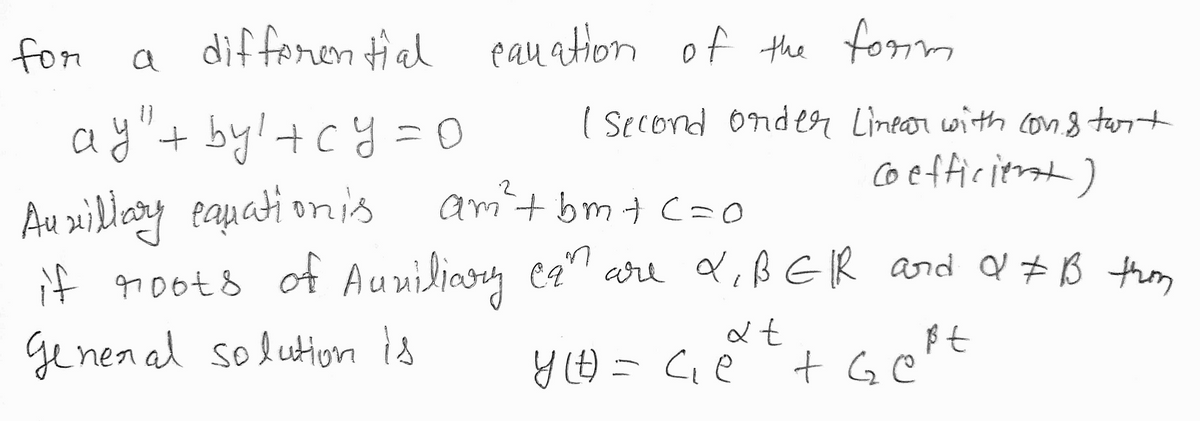 for a differential equation of the form
ay'' + by' + cy = 0 (Second order Linear with constant
coefficient)
Auxillary equation is am² + bm + c = 0
if roots of Auxiliary eqⁿ are α, β ∈ ℝ and α ≠ β then
general solution is y(t) = C₁e^{αt} + C₂e^{βt}